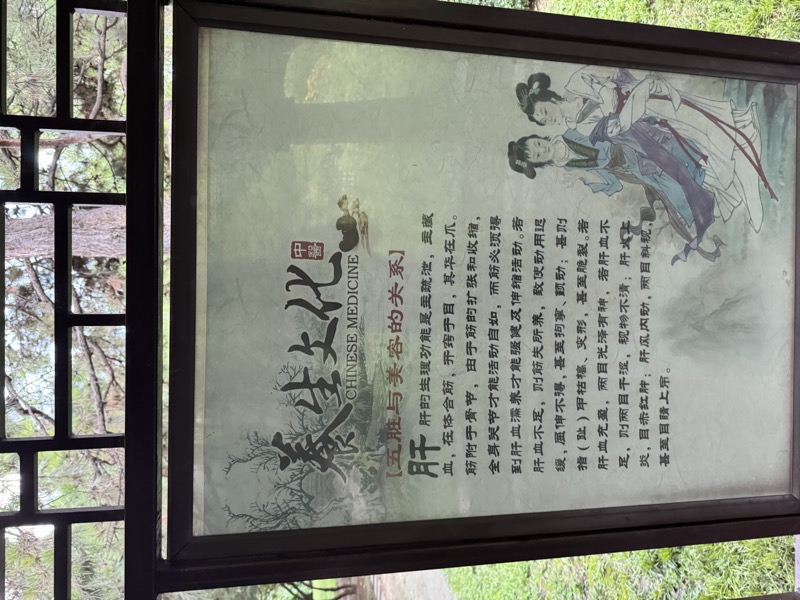 養生文化
中醫
CHINESE MEDICINE
【五脏与美容的关系】
肝 肝的生理功能是主疏泄，主藏
血，在体合筋，开窍于目，其华在爪。
筋附于骨节，由于筋的扩张和收缩，
全身关节才能活动自如，而筋必须得
到肝血濡养才能强健及伸缩活动。若
肝血不足，则筋失所养，致使动用迟
缓，屈伸不得，甚至拘挛、颤动；甚则
指（趾）甲枯槁、变形，甚至脆裂。若
肝血充盈，两目光泽有神，若肝血不
足，则两目干涩，视物不清；肝火上
炎，目赤红肿；肝风内动，两目斜视，
甚至目睛上吊。